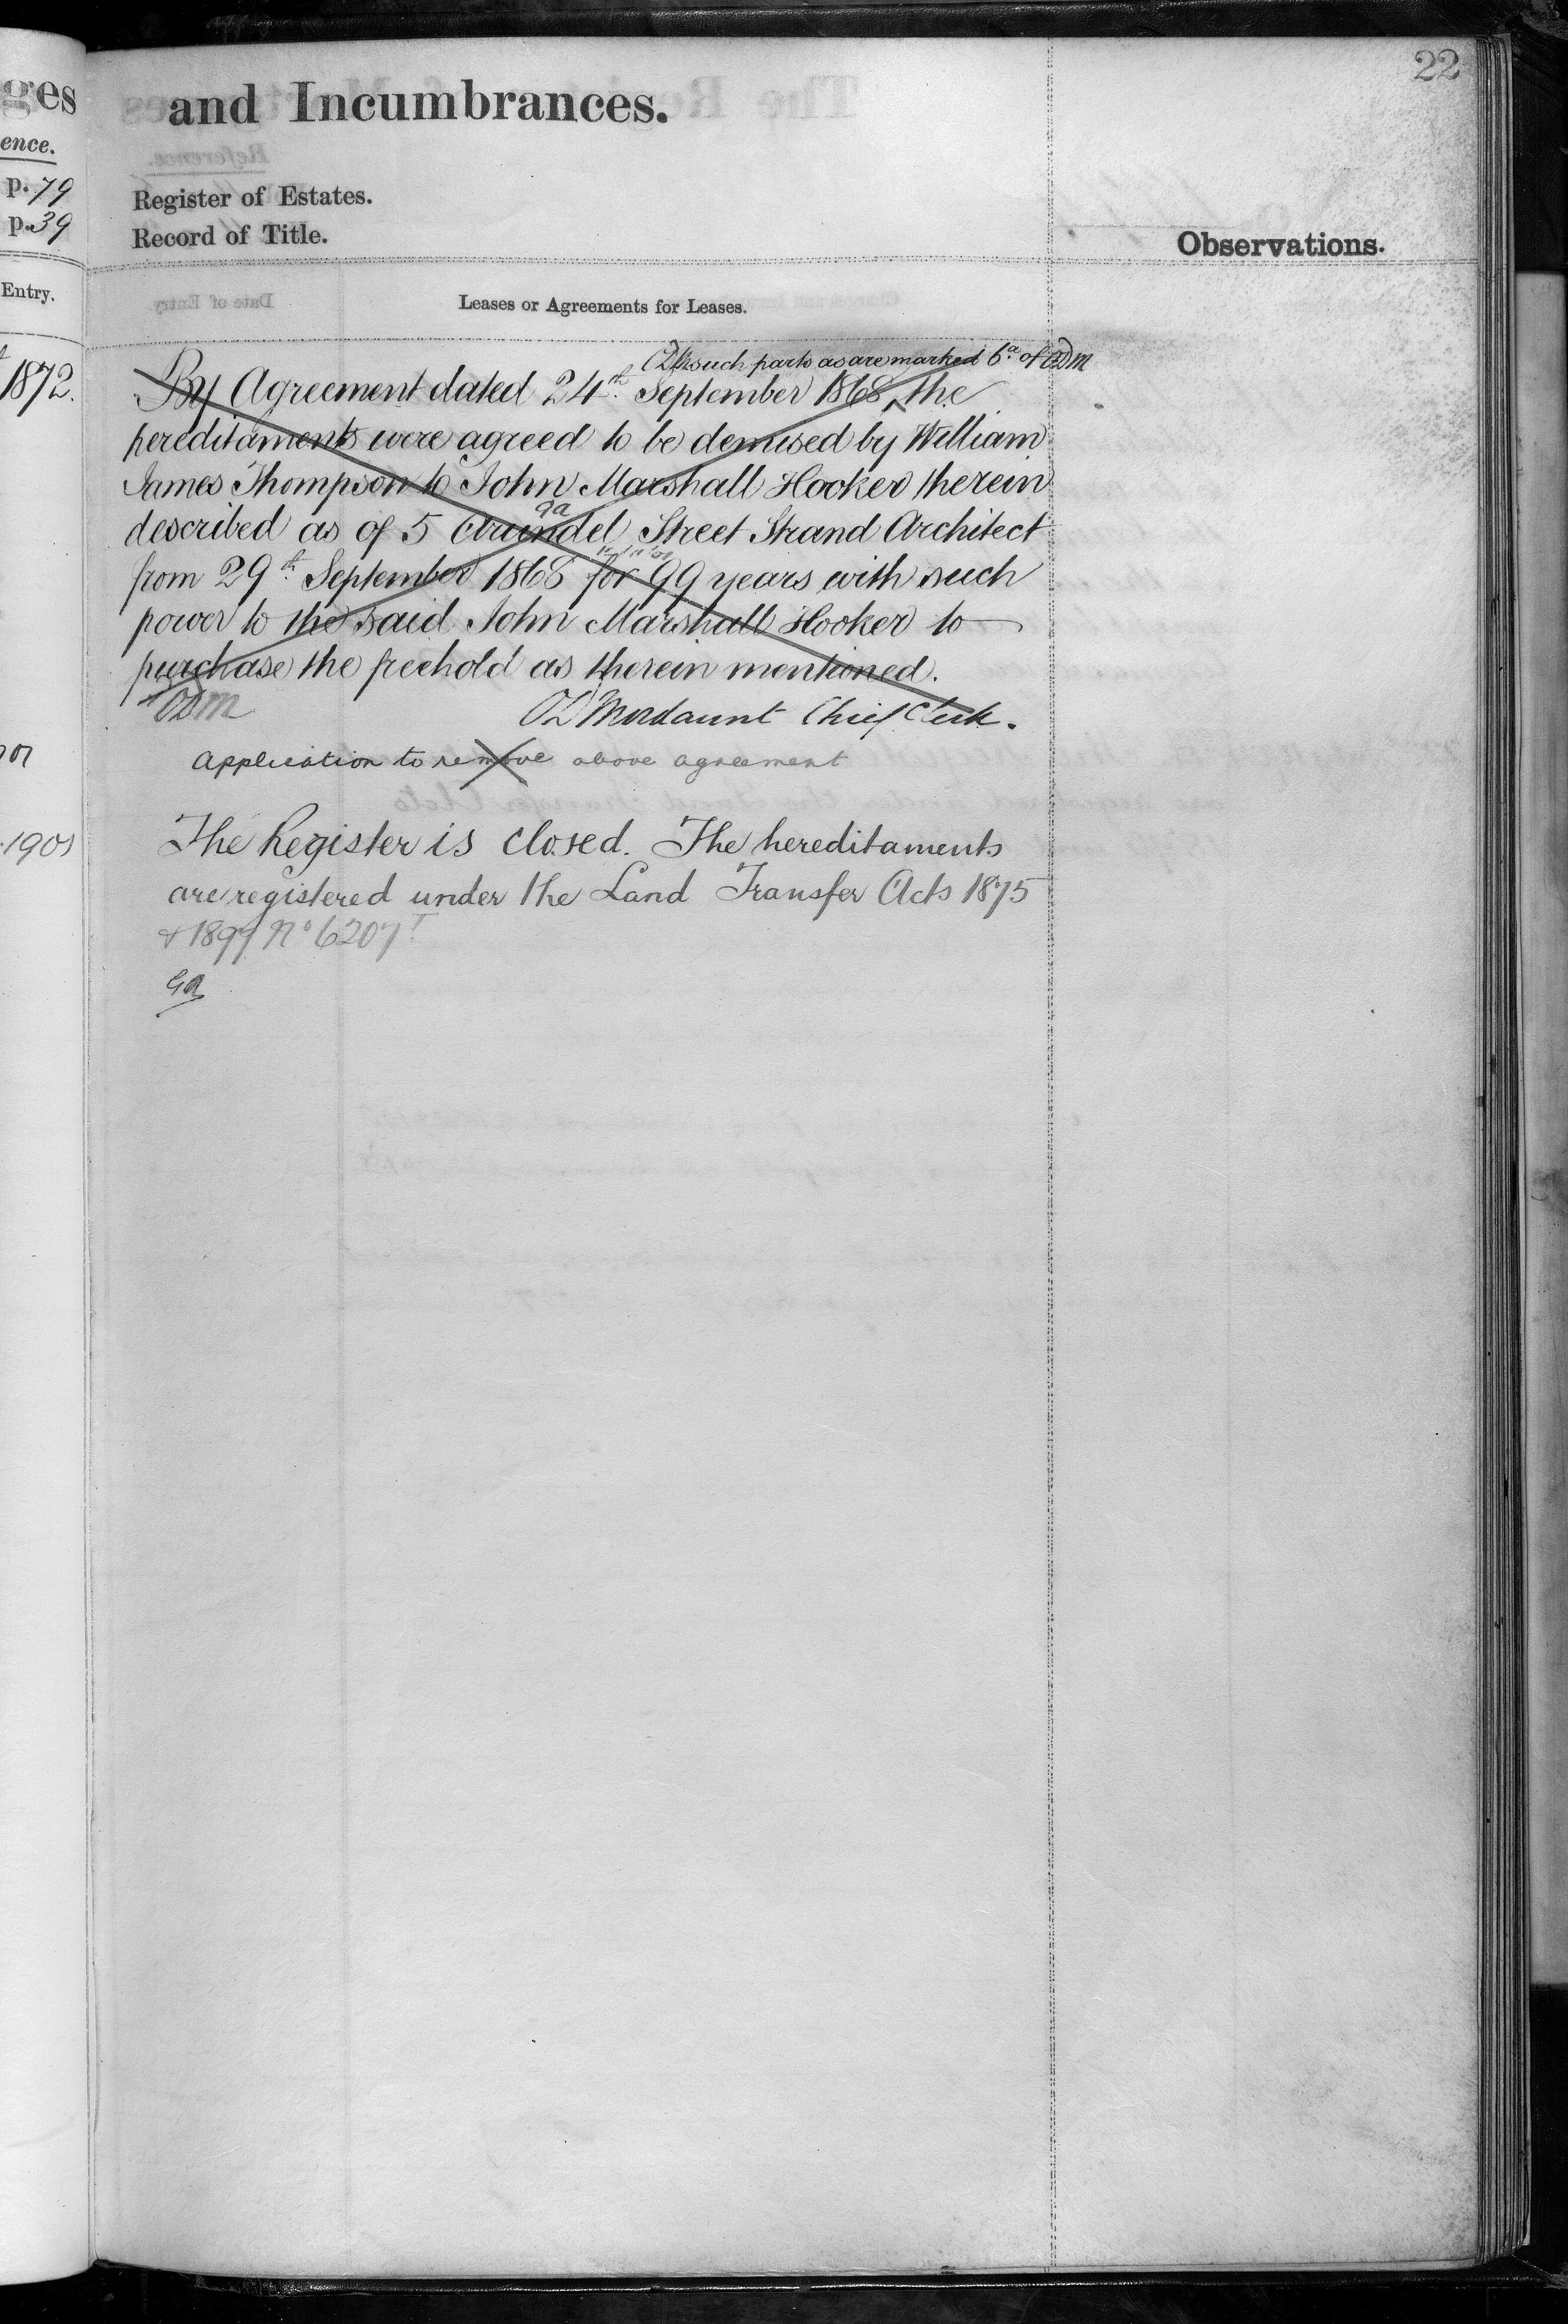 22
ges
and Incumbrances.
ence.
p. 79
Register of Estates.
p. 39
Record of Title.
Observations.
Entry.
Leases or Agreements for Leases.
such parts as are marked 6a of ODM
1872.
By Agreement dated 24th September 1868 the
hereditaments were agreed to be demised by William
James Thompson to John Marshall Hooker therein
ga
described as of 5 Arundel Street Strand Architect
from 29th September 1868 for 99 years with such
power to the said John Marshall Hooker to
purchase the freehold as therein mentioned.
ODM
OD Mordaunt Chief Clerk.
Application to remove above agreement
The Register is closed. The hereditaments
1901
are registered under the Land Transfer Acts 1875
& 1897 No 6207
ga